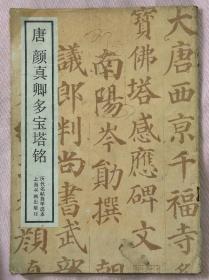 大唐西京千福寺
多寳佛塔感應碑文
南陽岑勛撰
議郎判尚書武部
顔真
唐 颜真卿多宝塔铭
历代名帖自学选本
上海书画出版社